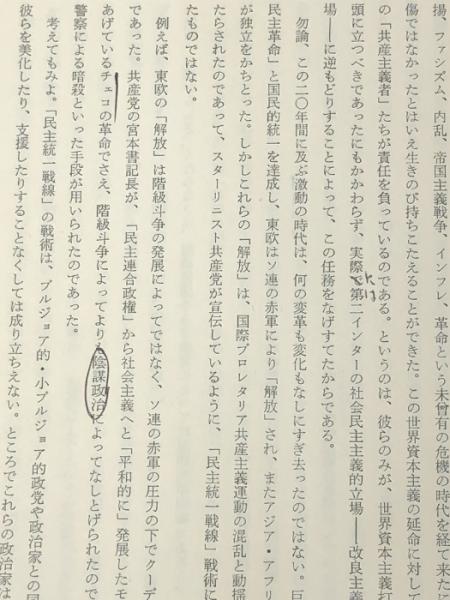 揚、ファシズム、内乱、帝国主義戦争、インフレ、革命という未曽有の危機の時代を経て来たに
傷ではなかったとはいえ生きのび持ちこたえることができた。この世界資本主義の延命に対して
の「共産主義者」たちが責任を負っているのである。というのは、彼らのみが、世界資本主義打
頭に立つべきであったにもかかわらず、実際で第二インターの社会民主主義的立場――改良主義
場――に逆もどりすることによって、この任務をなげすてたからである。
勿論、この二〇年間に及ぶ激動の時代は、何の変革も変化もなしにすぎ去ったのではない。巨
民主革命」と国民的統一を達成し、東欧はソ連の赤軍により「解放」され、またアジア・アフリ
が独立をかちとった。しかしこれらの「解放」は、国際プロレタリア共産主義運動の混乱と動揺
たらされたのであって、スターリニスト共産党が宣伝しているように、「民主統一戦線」戦術に
たものではない。
例えば、東欧の「解放」は階級斗争の発展によってではなく、ソ連の赤軍の圧力の下でクーデ
であった。共産党の宮本書記長が、「民主連合政権」から社会主義へと「平和的に」発展したモ
あげているチェコの革命でさえ、階級斗争によってよりも陰謀政治によってなしとげられたので
警察による暗殺といった手段が用いられたのであった。
考えてもみよ。「民主統一戦線」の戦術は、ブルジョア的・小ブルジョア的政党や政治家との同
彼らを美化したり、支援したりすることなくしては成り立ちえない。ところでこれらの政治家は